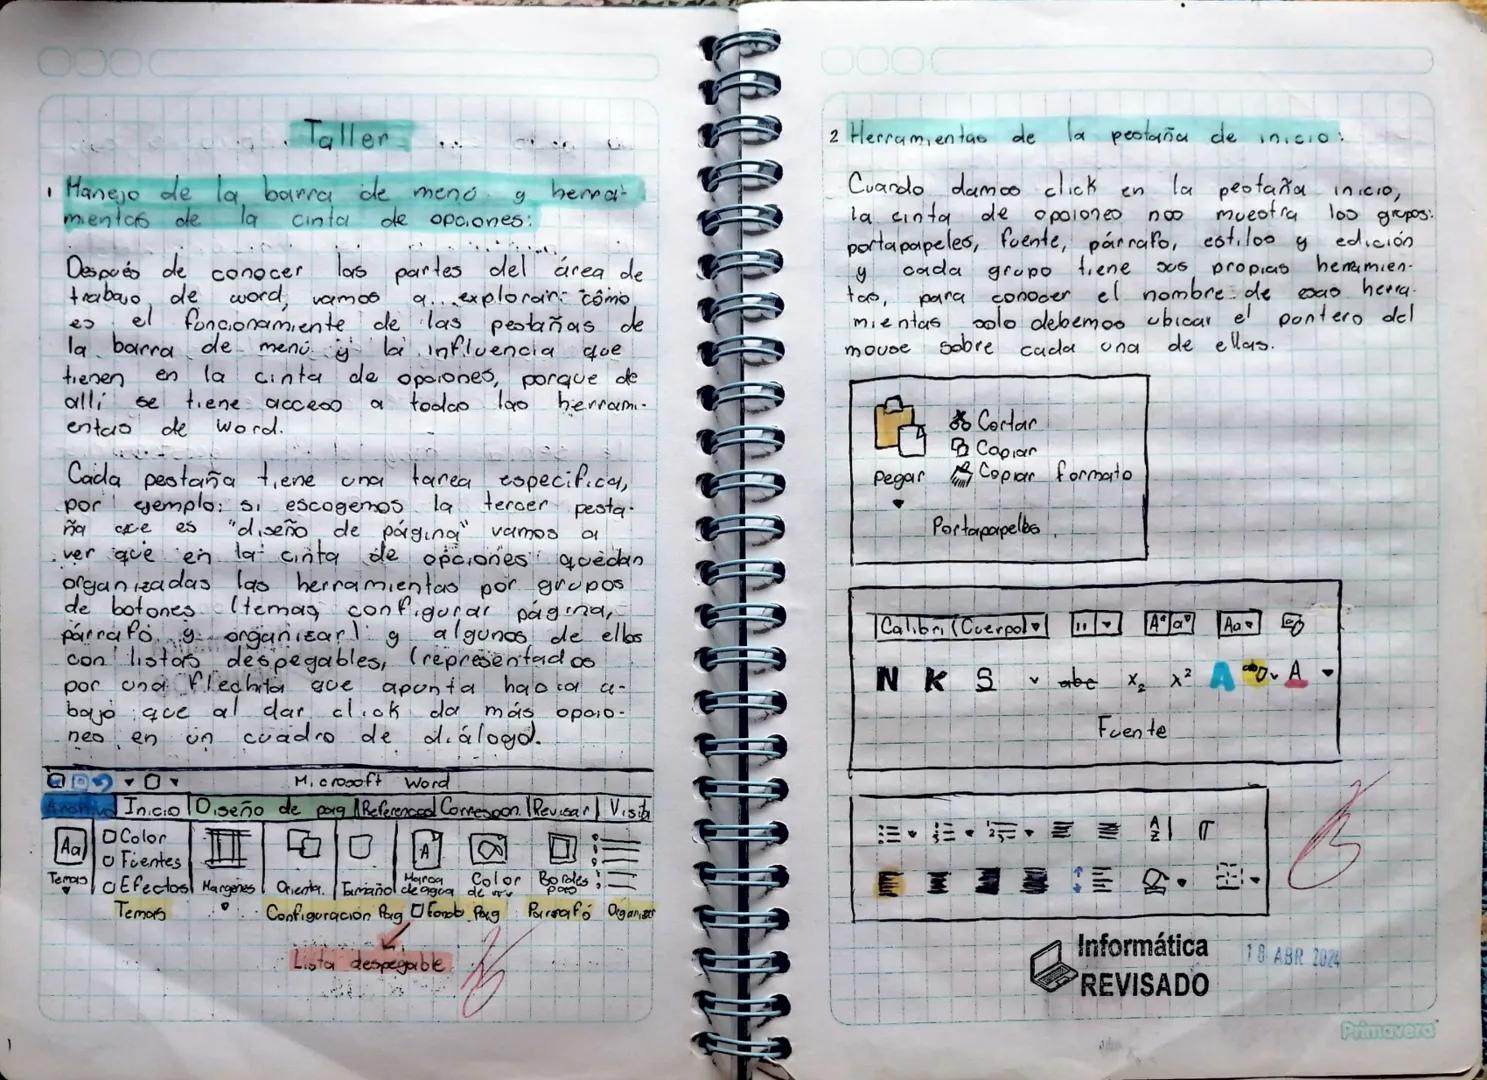 Taller
1 Manejo de la barra de menú y herra-
mientas de la cinta de opciones:
Después de conocer las partes del área de
trabajo de word, vamos a explorar cómo
es el funcionamiento de las pestañas de
la barra de menú y la influencia que
tienen en la cinta de opciones, porque de
allí se tiene acceso a todas las herrami-
entas de Word.
Cada pestaña tiene una tarea especifica,
por ejemplo: si escogemos la tercer pesta-
ña que es "diseño de página" vamos a
ver que en la cinta de opciones quedan
organizadas las herramientas por grupos
de botones (temas, configurar página,
párrafo y organizar) y algunos de ellos
con listas despegables, (representados
por una flechita que apunta hacia a-
bajo que al dar click da más opcio-
nes en un cuadro de diálogo.
Microsoft Word
Archivo Inicio Diseño de pag Referencas Correspon. Revisar Vista
Aa Color
Fuentes
Temas Efectos Margenes Orienta. Tamaño Marca de agua A Color de Bordes pag
Temas Configuración Pag Fondo Pag Parrafó Organizar
Lista despegable
2 Herramientas de la pestaña de inicio:
Cuando damos click en la pestaña inicio,
la cinta de opciones nos muestra los grupos:
portapapeles, fuente, párrafo, estilos y edición
y cada grupo tiene sus propias herramien-
tas, para conocer el nombre de esas herra-
mientas solo debemos ubicar el pontero del
mouse sobre cada una de ellas.
Cortar
Copiar
Pegar Copiar formato
Portapapeles
Calibri (Cuerpo) 11 A a Aa
N K S abc x₂ x² A ab A
Fuente
A
Z
Informática 18 ABR 2024
REVISADO
Primavera